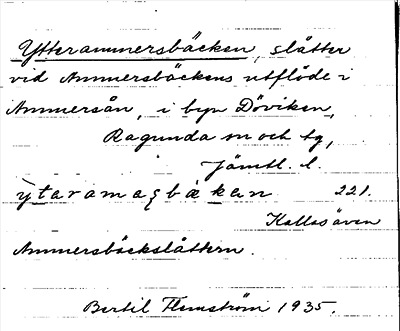 Ytterammersbäcken, slåtter
vid Ammersbäckens utflöde i
Ammersån, i byn Döviken,
Ragunda sn och tg,
Jämtl. l.
ỳtaramaʂbækən 221.
Kallas även
Ammersbäckslåttern.
Bertil Flemström 1935.